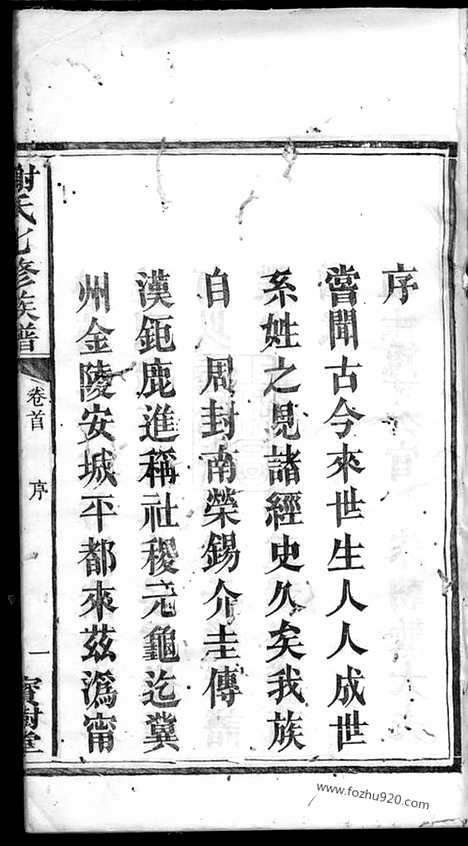 序
嘗聞古今來世生人人成世
系姓之見諸經史久矣我族
自 周封南榮錫介圭傳
漢鉅鹿進稱社稷元龜迄冀
州金陵安城平都來茲溈甯
謝氏七修族譜
卷首
序
一
寶樹堂
www.fozhu920.com